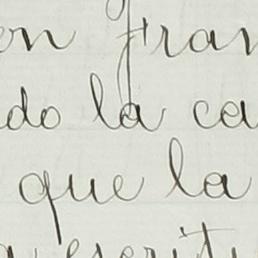 en fran
do la ca
que la
escrit